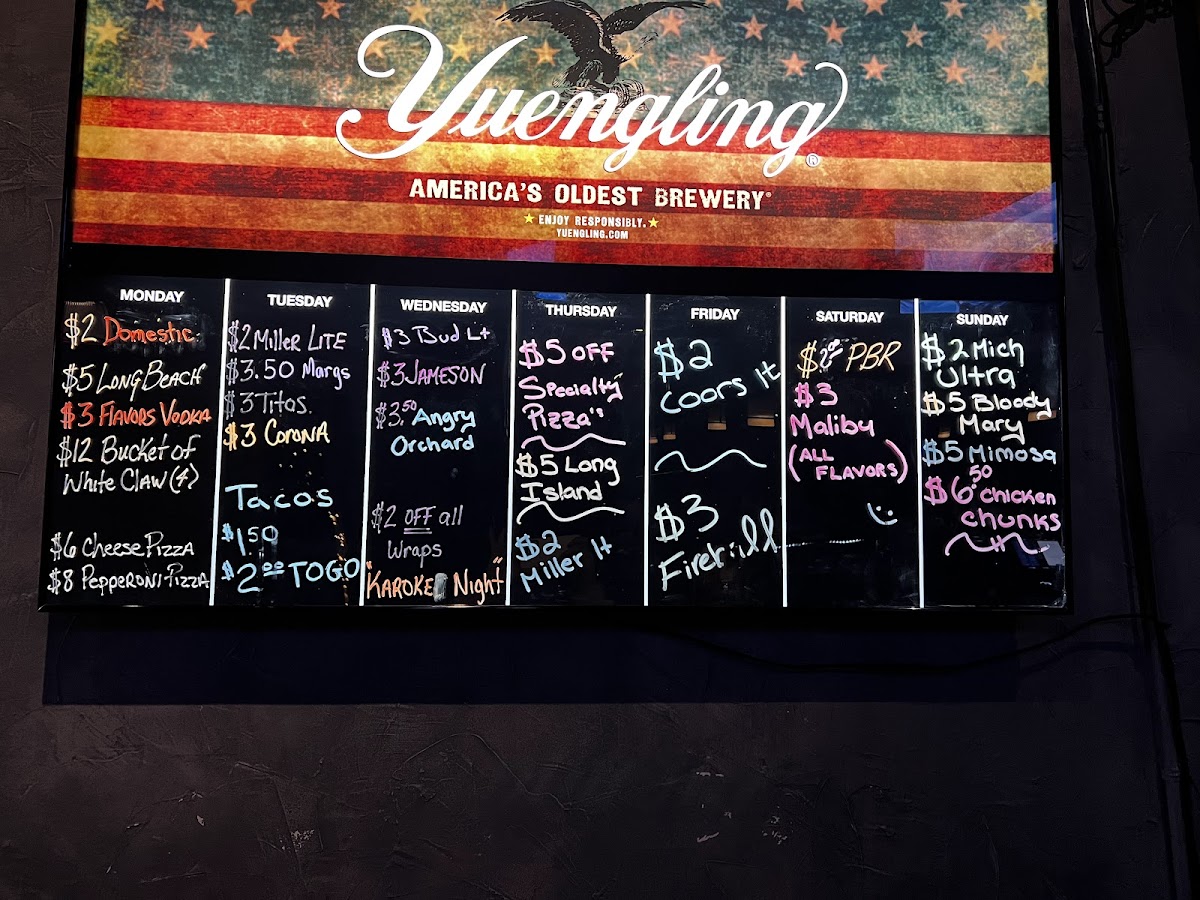 Yuengling®
AMERICA'S OLDEST BREWERY®
★ ENJOY RESPONSIBLY. ★
YUENGLING.COM
MONDAY
$2 Domestic
$5 LONG BEACH
$3 FLAVORS VODKA
$12 Bucket of
White Claw (4)
$6 Cheese Pizza
$8 Pepperoni Pizza
TUESDAY
$2 Miller LITE
$3.50 Margs
$3 Titos.
$3 CORONA
Tacos
$1.50
$2.00 TOGO
WEDNESDAY
$3 Bud Lt
$3 JAMESON
$3.50 Angry
Orchard
$2 OFF all
Wraps
"KAROKE Night"
THURSDAY
$5 OFF
Specialty
Pizza"
$5 Long
Island
$2
Miller lt
FRIDAY
$2
Coors lt
$3
Fireball
SATURDAY
PBR
$3
Malibu
(ALL
FLAVORS)
SUNDAY
$2 Mich
Ultra
$5 Bloody
Mary
$5 Mimosa
$6.50 chicken
chunks